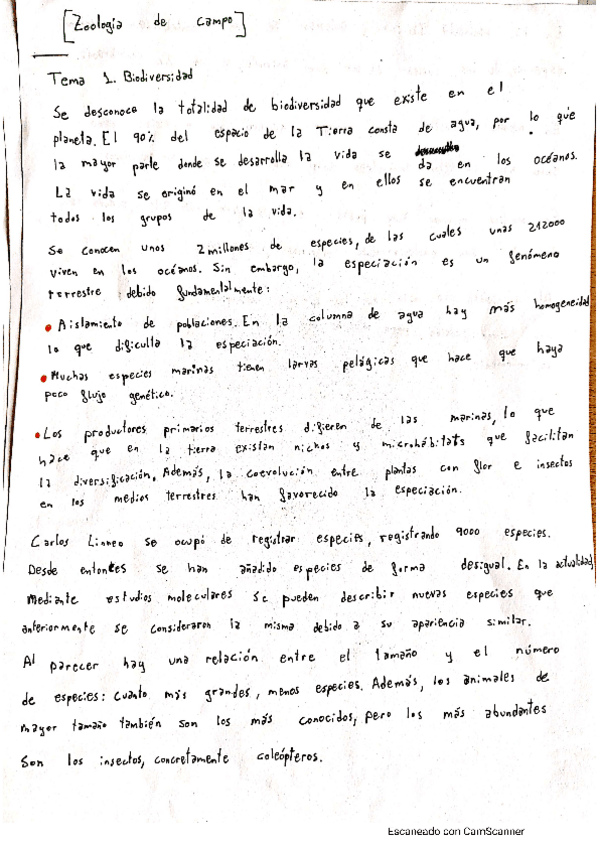 [Zoología de campo]
Tema 1. Biodiversidad
Se desconoce la totalidad de biodiversidad que existe en el
planeta. El 90% del espacio de la Tierra consta de agua, por lo que
la mayor parte donde se desarrolla la vida se da en los océanos.
La vida se originó en el mar y en ellos se encuentran
todos los grupos de la vida.
Se conocen unos 2 millones de especies, de las cuales unas 212000
viven en los océanos. Sin embargo, la especiación es un fenómeno
terrestre debido fundamentalmente:
• Aislamiento de poblaciones. En la columna de agua hay más homogeneidad
lo que dificulta la especiación.
• Muchas especies marinas tienen larvas pelágicas que hace que haya
poco flujo genético.
• Los productores primarios terrestres difieren de las marinas, lo que
hace que en la tierra existan nichos y microhábitats que facilitan
la diversificación. Además, la coevolución entre plantas con flor e insectos
en los medios terrestres han favorecido la especiación.
Carlos Linneo se ocupó de registrar especies, registrando 9000 especies.
Desde entonces se han añadido especies de forma desigual. En la actualidad,
Mediante estudios moleculares se pueden describir nuevas especies que
anteriormente se consideraron la misma debido a su apariencia similar.
Al parecer hay una relación entre el tamaño y el número
de especies: Cuanto más grandes, menos especies. Además, los animales de
mayor tamaño también son los más conocidos, pero los más abundantes
son los insectos, concretamente coleópteros.
Escaneado con CamScanner